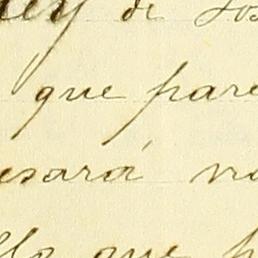 ley de los
que pare
esará no
llo que p